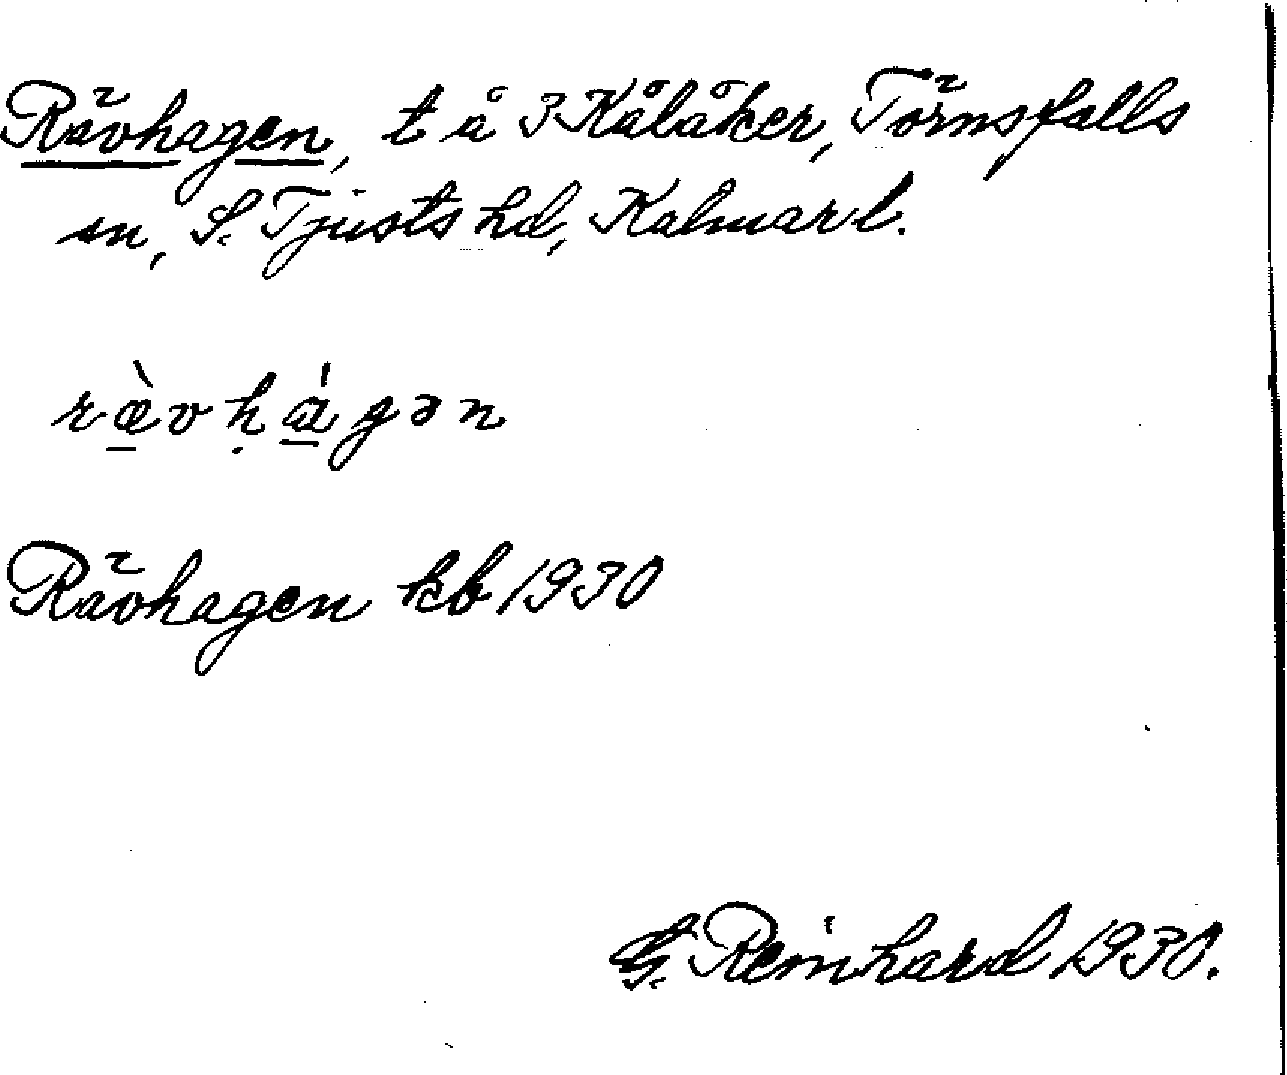 Rävhagen, t å 3 Kålåker, Törnsfalls
sn, S. Tjusts hd, Kalmar l.
ræ̠̀vḥɑ̠́gən
Rävhagen kb 1930
G. Reinhard 1930.